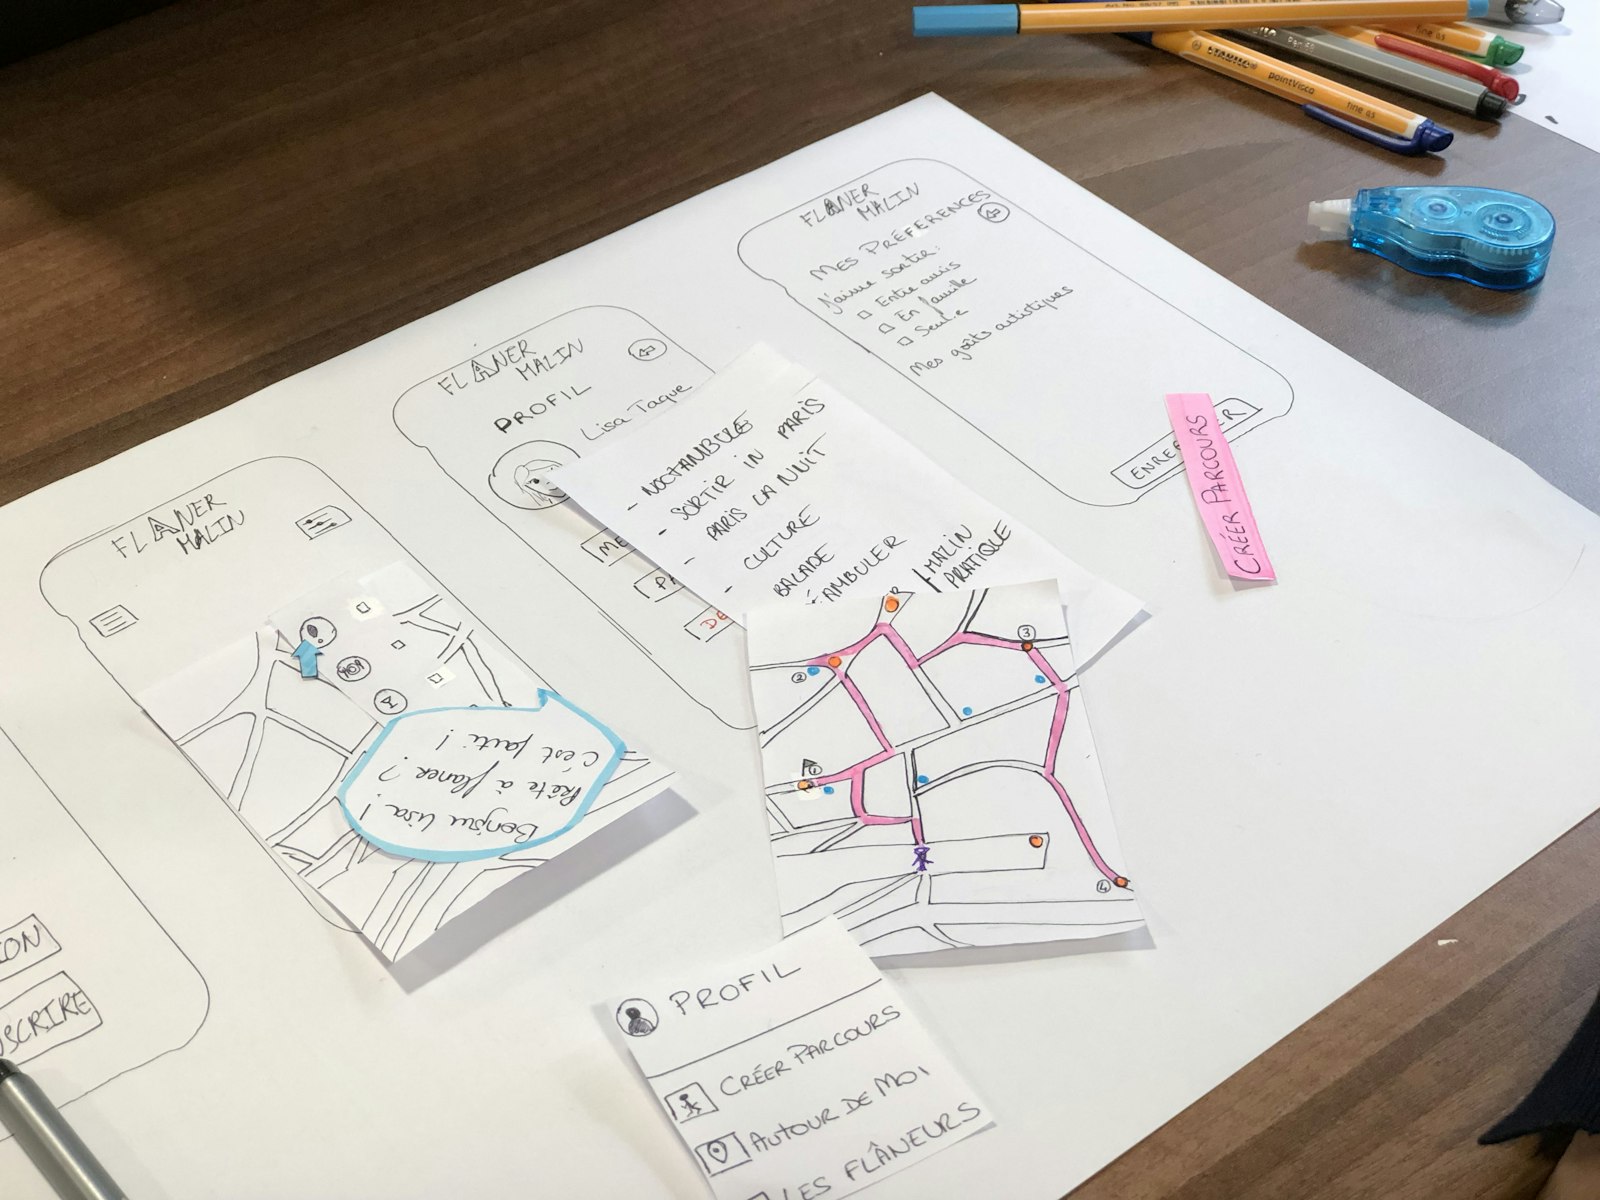 FLANER
MALIN
MES PRÉFÉRENCES
J'aime sortir:
Entre amis
En famille
Seul.e
Mes goûts artistiques
CRÉER PARCOURS
FLANER
MALIN
PROFIL
Lisa Taque
ME
DE
- NOCTAMBULE
- SORTIR IN PARIS
- PARIS LA NUIT
- CULTURE
BALADE
AMBULER
MALIN
PRATIQUE
FLANER
MALIN
Bonjour Lisa!
Prête à flaner?
C'est parti!
1
2
3
4
ION
SCRIRE
PROFIL
CRÉER PARCOURS
AUTOUR DE MOI
LES FLÂNEURS
STABILO
pointVisco
fine 05
fine 05